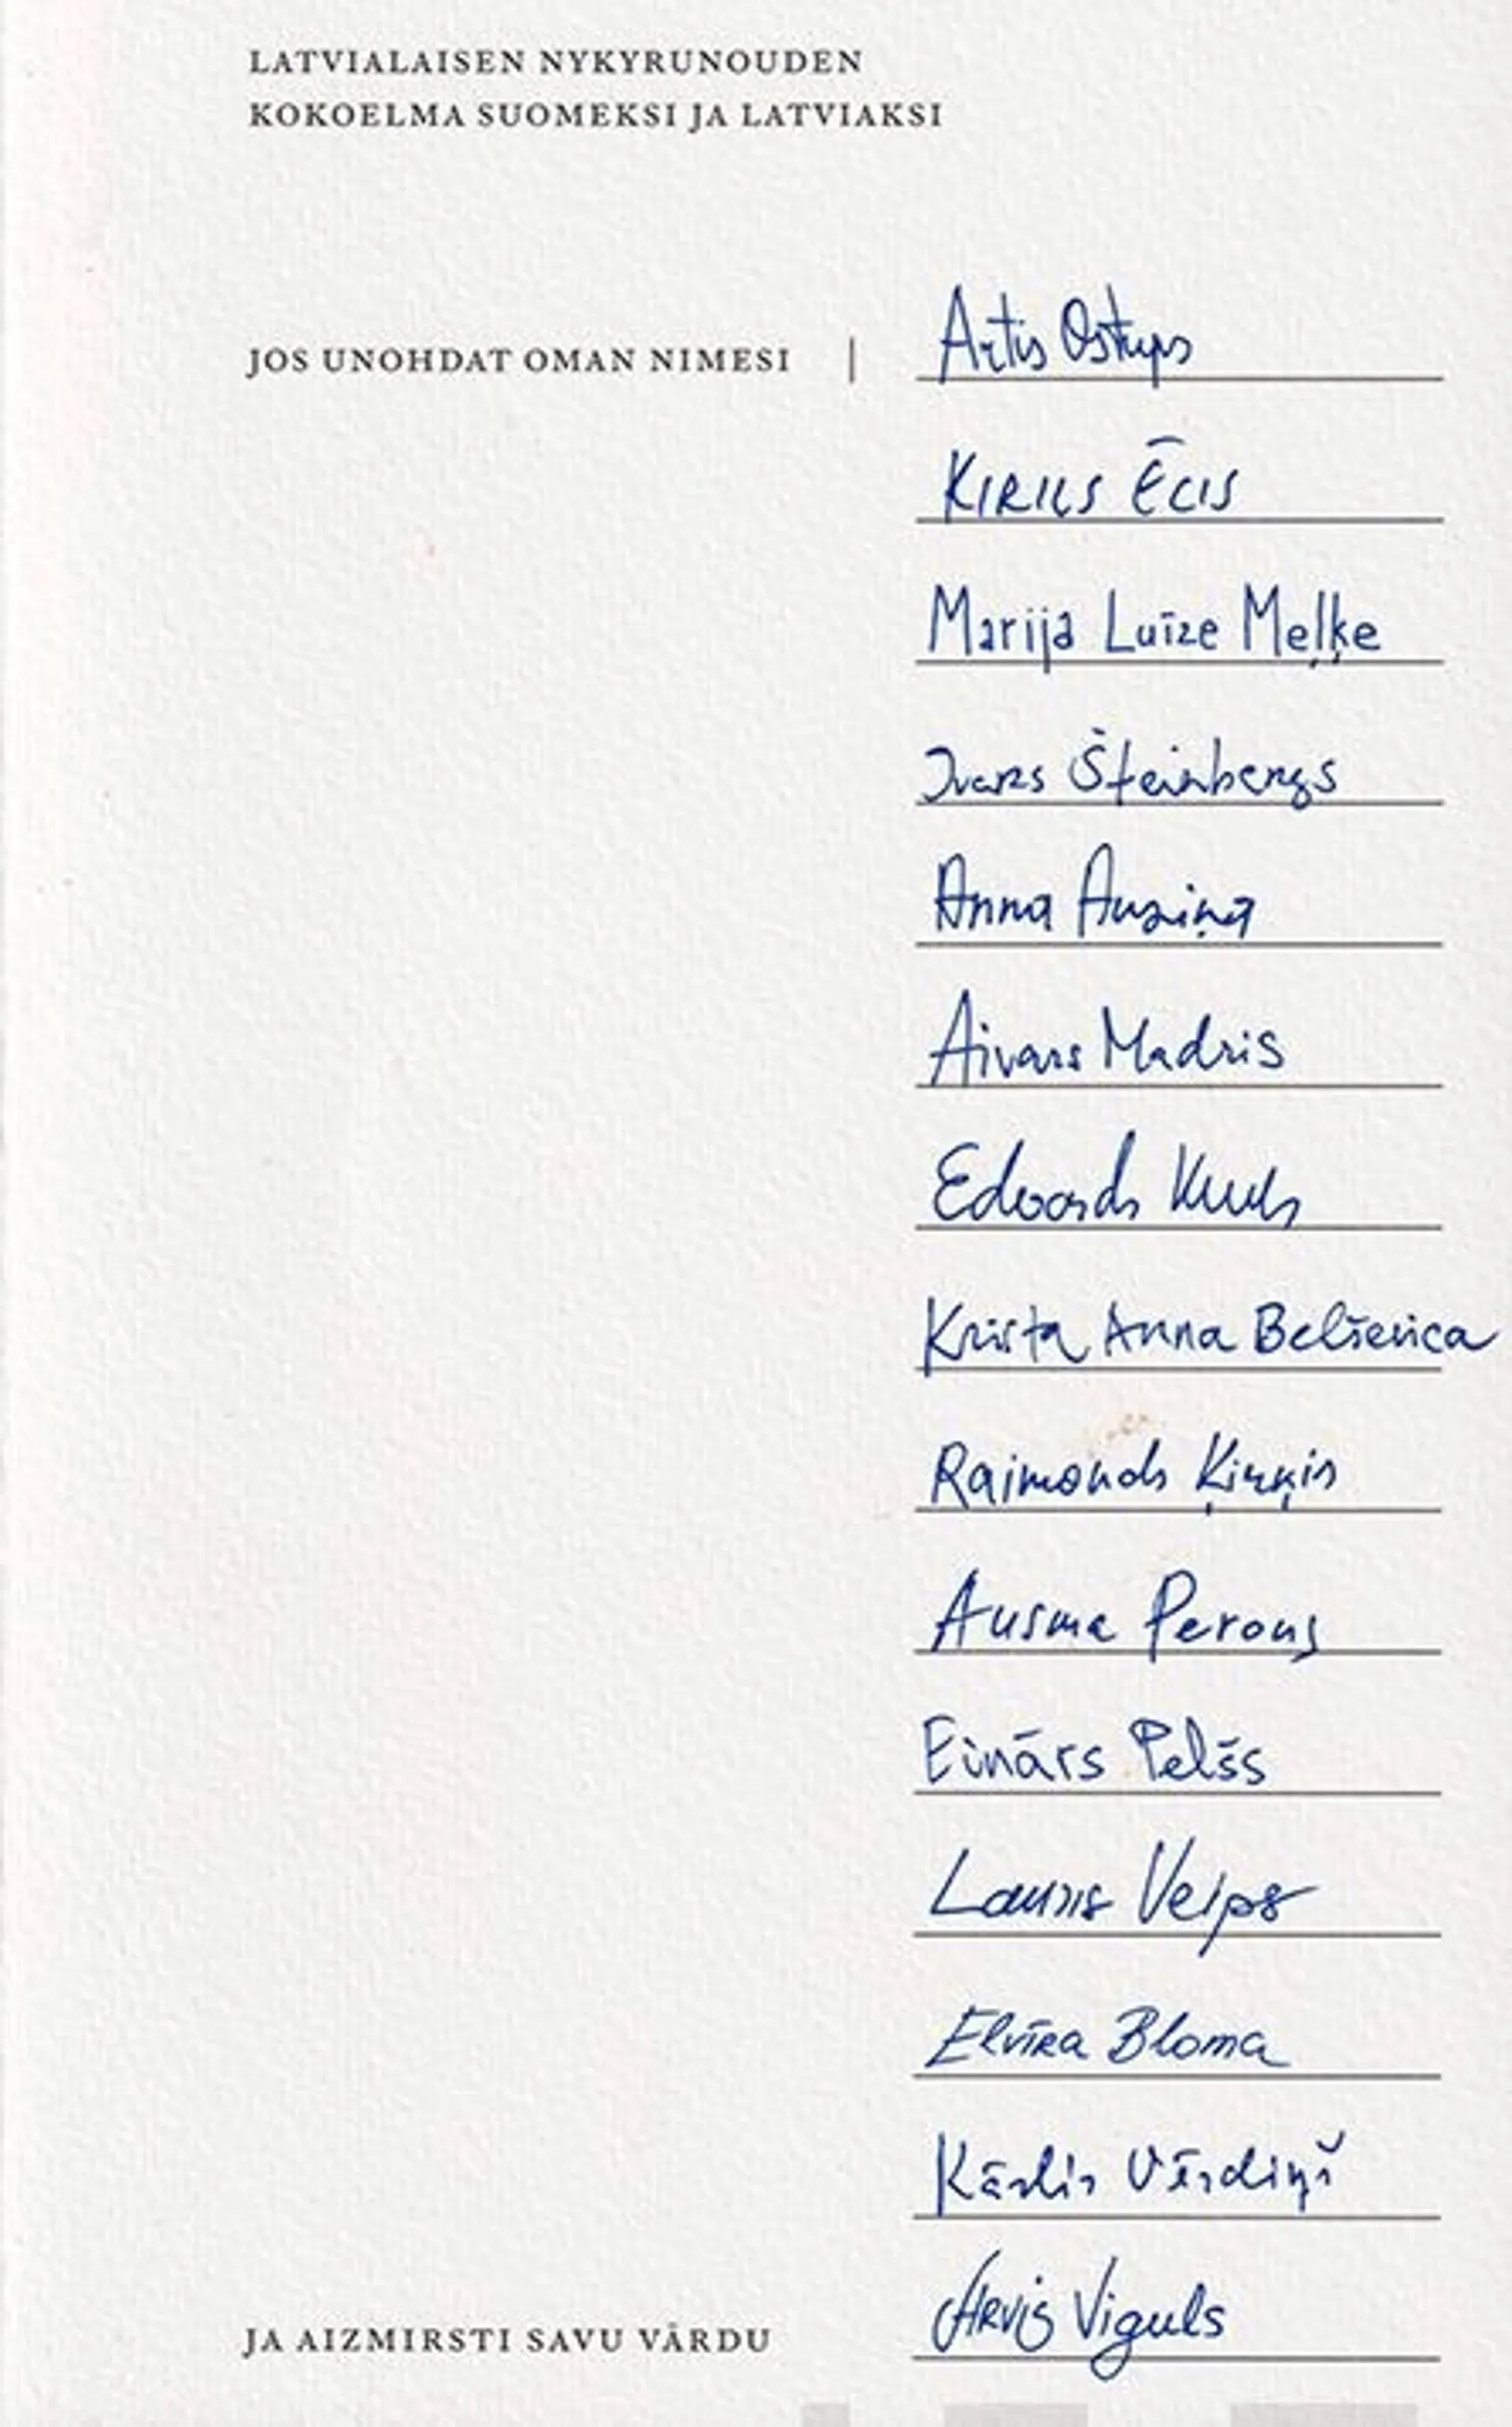 LATVIALAISEN NYKYRUNOUDEN
KOKOELMA SUOMEKSI JA LATVIAKSI
JOS UNOHDAT OMAN NIMESI | Artis Ostups
KIRILS ĒCIS
Marija Luīze Meļķe
Ivars Šteinbergs
Anna Auziņa
Aivars Madris
Edvards Kuks
Krista Anna Belševica
Raimonds Ķirķis
Ausma Perons
Einārs Pelšs
Lauris Veips
Elvīra Bloma
Kārlis Vērdiņš
JA AIZMIRSTI SAVU VĀRDU Arvis Viguls